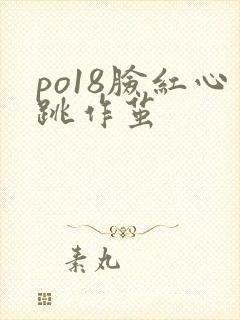 po18臉紅心
跳作茧
素丸